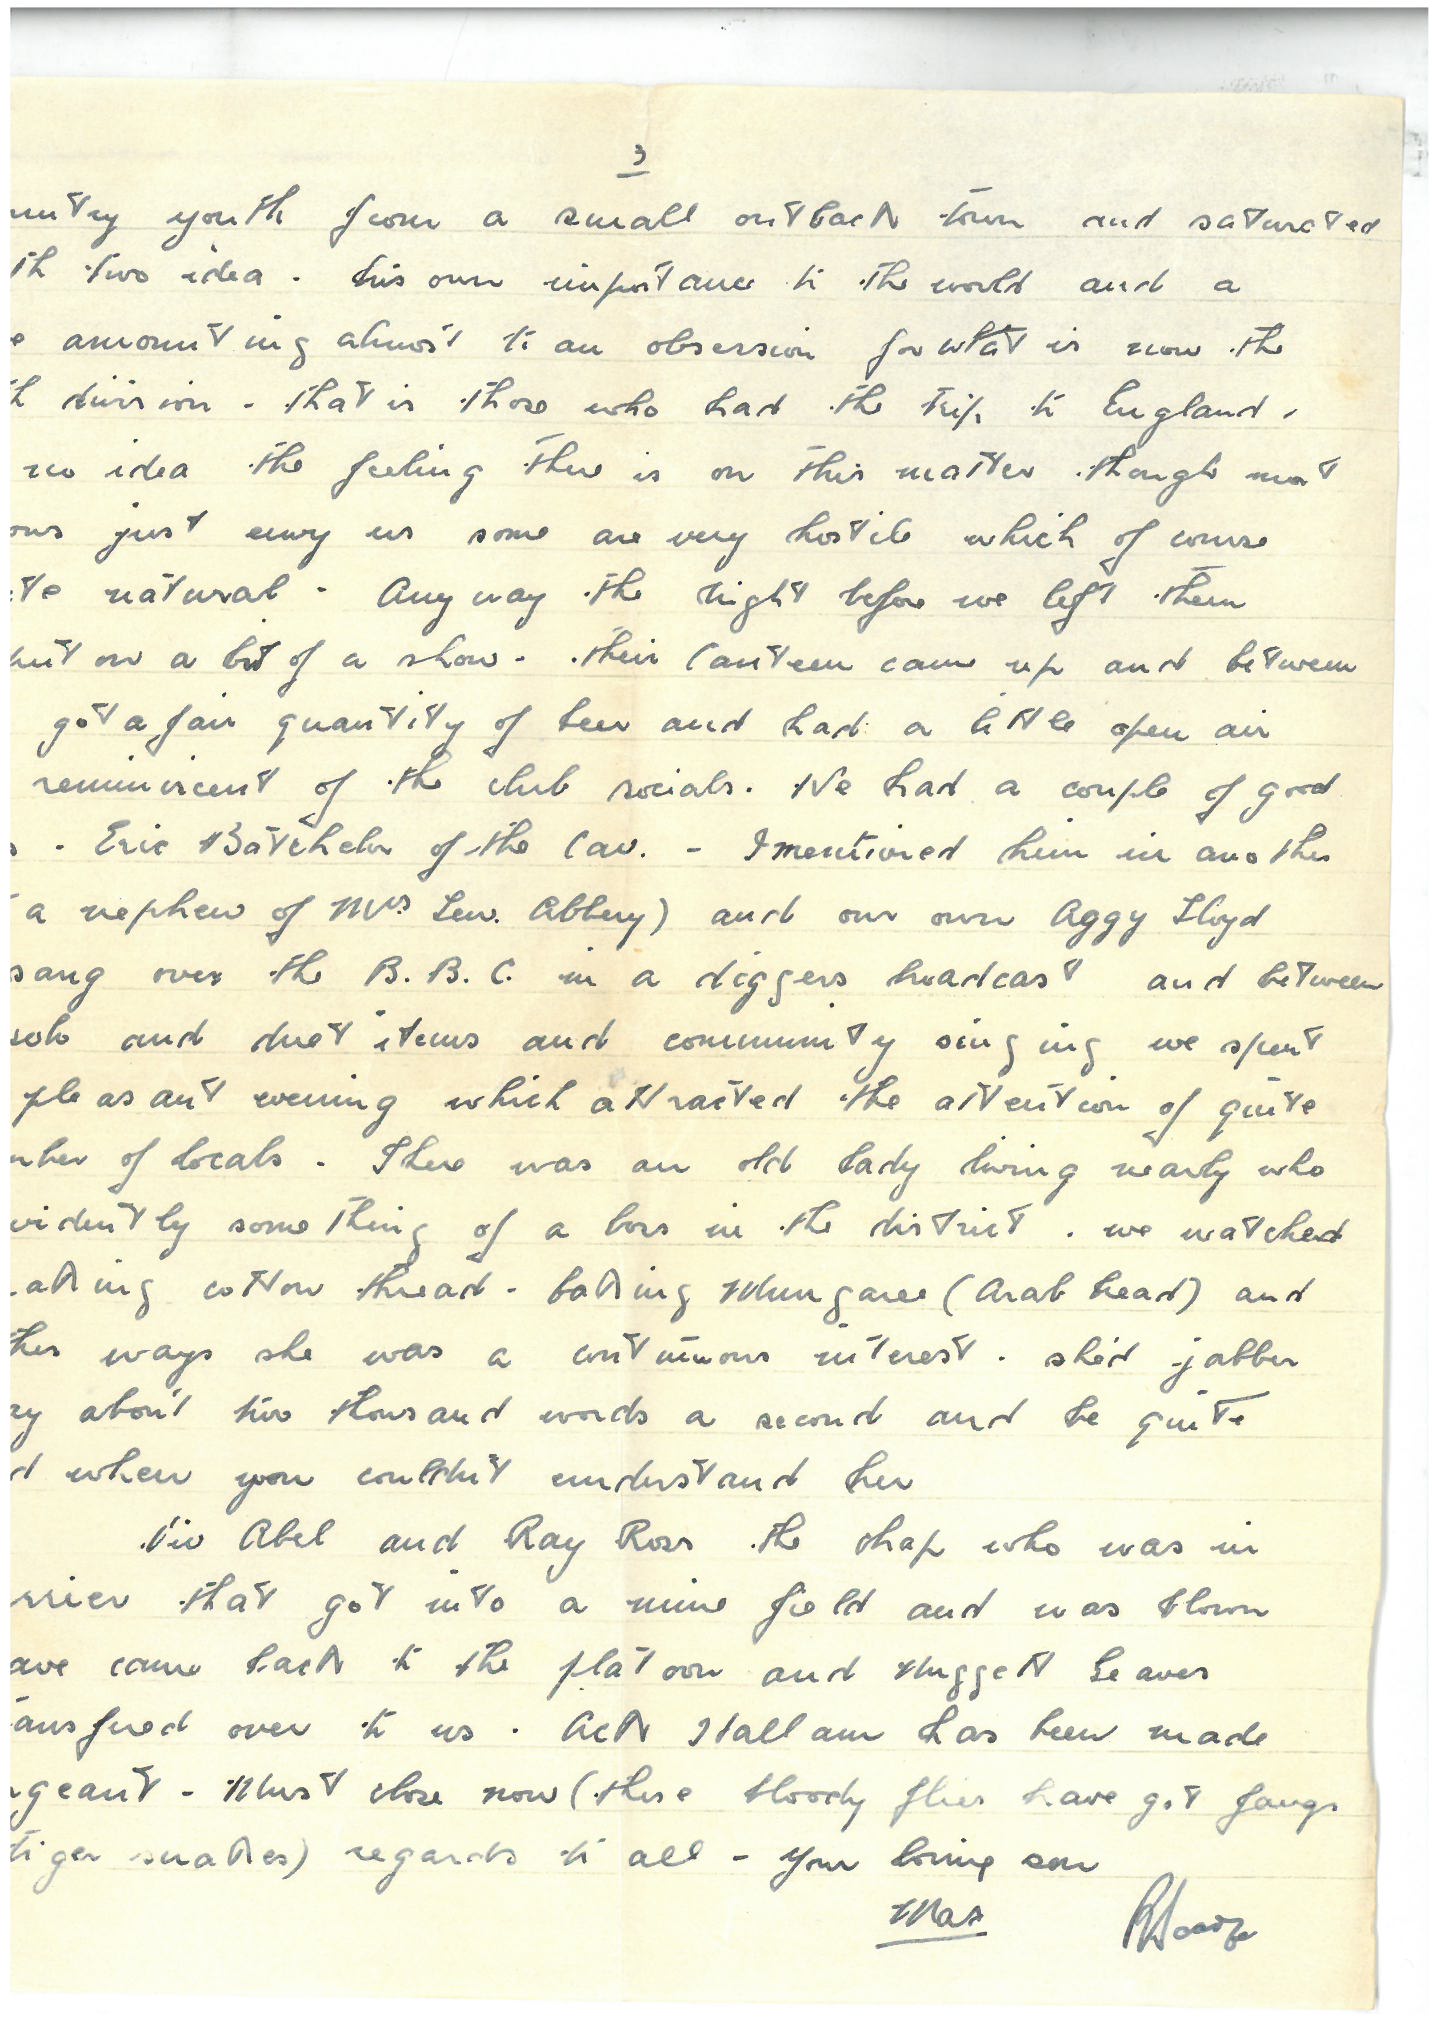 3
untry youth from a small outback town and saturated
th two idea - his own importance to the world and a
e amounting almost to an obsession for what is now the
th division - that is those who had the trip to England.
no idea the feeling there is on this matter though most
ows just envy us some are very hostile which of course
ite natural - Anyway the night before we left them
put on a bit of a show - their Canteen came up and between
got a fair quantity of beer and had a little open air
reminiscent of the club socials. We had a couple of good
s - Eric Batchelor of the Cav. - I mentioned him in another
(a nephew of Mrs Lew. Abbey) and our own Aggy Lloyd
sang over the B.B.C. in a diggers broadcast and between
solo and duet items and community singing we spent
pleasant evening which attracted the attention of quite
mber of locals - There was an old lady living nearby who
vidently something of a boss in the district . we watched
aking cotton thread - baking Mungaree (Arab bread) and
ther ways she was a continuous interest . she'd jabber
ay about two thousand words a second and be quite
d when you couldn't understand her
Viv Abel and Ray Ross the chap who was in
rrier that got into a mine field and was blown
ave come back to the platoon and Nuggett Leaver
ansfered over to us . Ack Hallam has been made
rgeant - Must close now (these bloody flies have got fangs
tiger snakes) regards to all - your loving son
Max